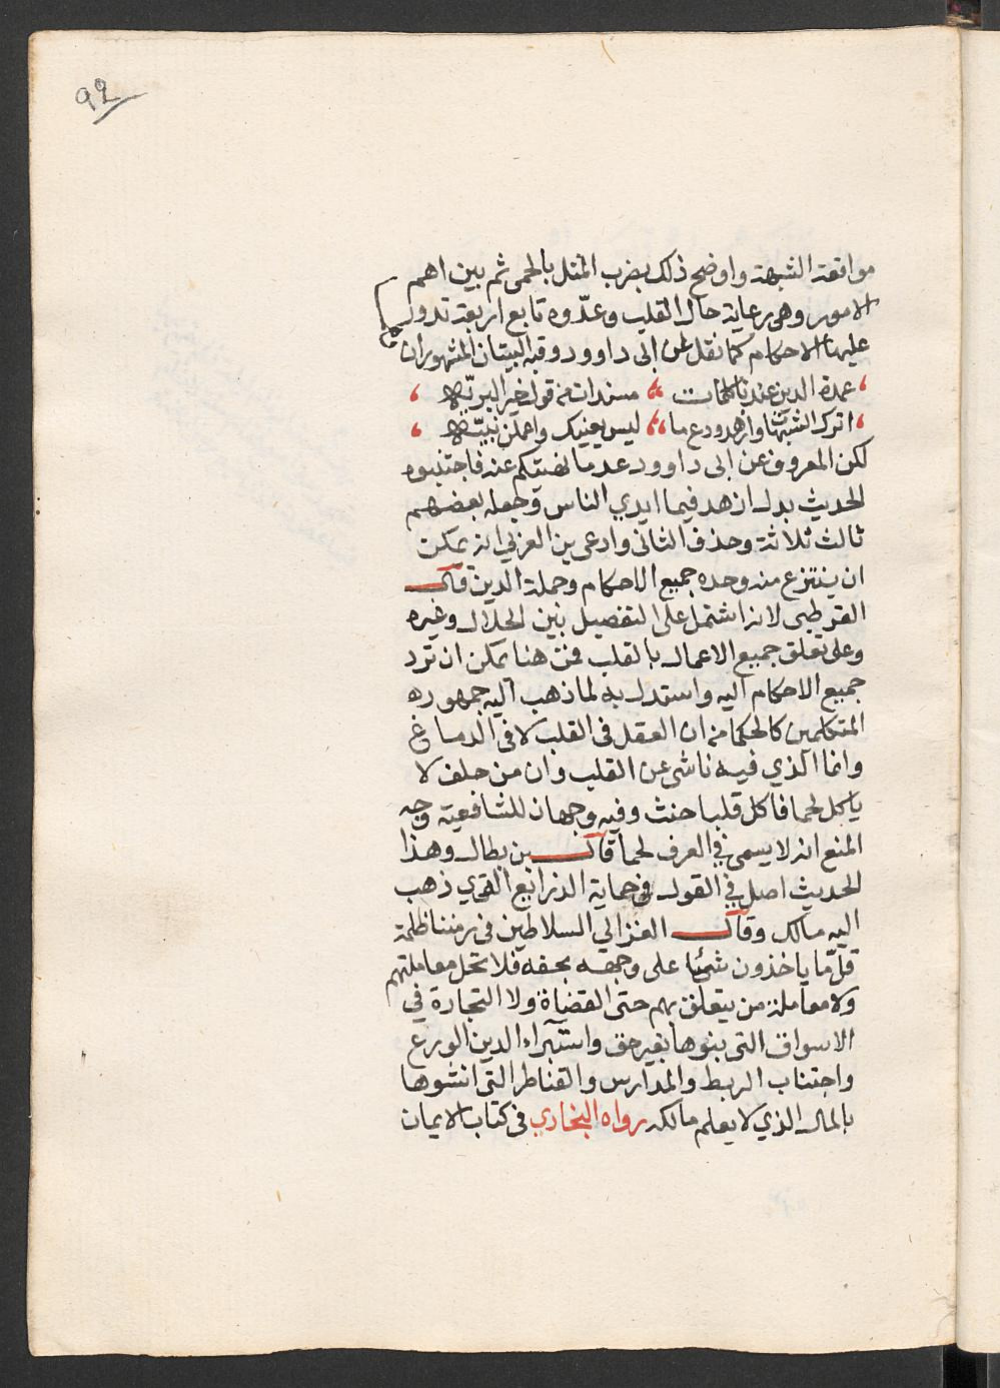 ٩٢
مواقعة الشبهة واوضح ذلك بضرب المثل بالحمى ثم بين اهم
الامور وهى رعاية حال القلب وعدّوه تابع اربعة تدور
عليها الاحكام كما نقل عن ابى داوود وفيه البيتان المشهوران
عمدة الدين عندنا كلمات مسندات من قول خير البريّه
اترك الشبهات وازهد ودع ما ليس يعنيك واعملن بنيّه
لكن المعروف عن ابى داوود عد ما نهيتكم عنه فاجتنبوه
الحديث بدل ازهد فيما ايدي الناس وجعله بعضهم
ثالث ثلاثة وحذف الثانى وادعى بن العربي انه يمكن
ان ينتزع منه وحده جميع الاحكام وحملة الدين قال
القرطبى لانه اشتمل على التفصيل بين الحلال وغيره
وعلى تعلق جميع الاعمال بالقلب فمن هنا يمكن ان ترد
جميع الاحكام اليه واستدل به لما ذهب اليه جمهوره
المتكلمين كالحكما من ان العقل فى القلب لا فى الدماغ
وانما الذي فيه ناشى عن القلب وان من حلف لا
ياكل لحما فاكل قلبا حنث وفيه وجهان للشافعية وجه
المنع انه لا يسمى في العرف لحما قال بن بطال وهذا
الحديث اصل في القول فى حماية الذرايع الذي ذهب
اليه مالك وقال الغزالي السلاطين فى زمننا ظلمة
قلّما ياخذون شيئا على وجهه بحقه فلا تحل معاملتهم
ولا معاملة من يتعلق بهم حتى القضاة ولا التجارة في
الاسواق التى بنوها بغير حق واستبراء الدين الورع
واجتناب الربط والمدارس والقناطر التى انشوها
بالمال الذي لا يعلم مالكه رواه البخاري فى كتاب الايمان